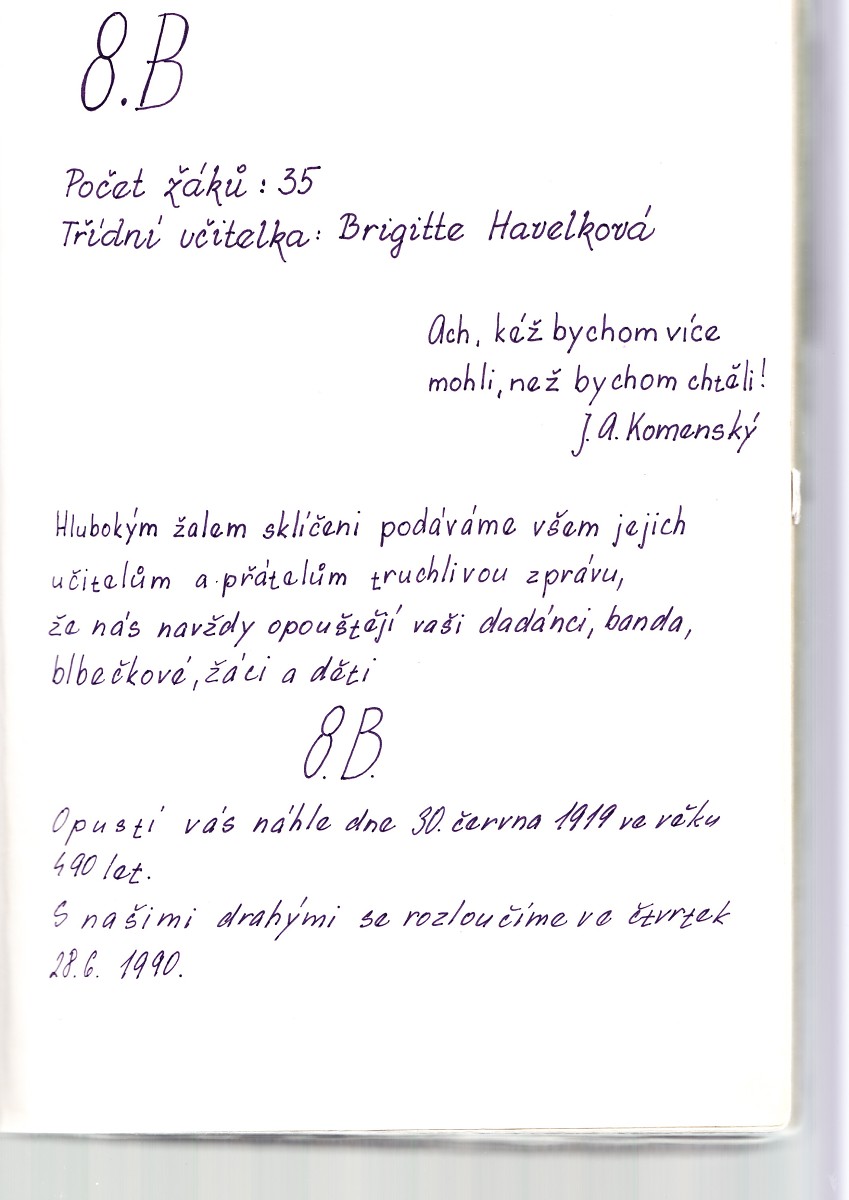 8.B
Počet žáků : 35
Třídní učitelka : Brigitte Havelková
Ach, kéž bychom více
mohli, než bychom chtěli!
J. A. Komenský
Hlubokým žalem sklíčeni podáváme všem jejich
učitelům a přátelům truchlivou zprávu,
že nás navždy opouštějí vaši dadánci, banda,
blbečkové, žáci a děti
8.B.
Opustí vás náhle dne 30. června 1919 ve věku
490 let.
S našimi drahými se rozloučíme ve čtvrtek
28.6. 1990.